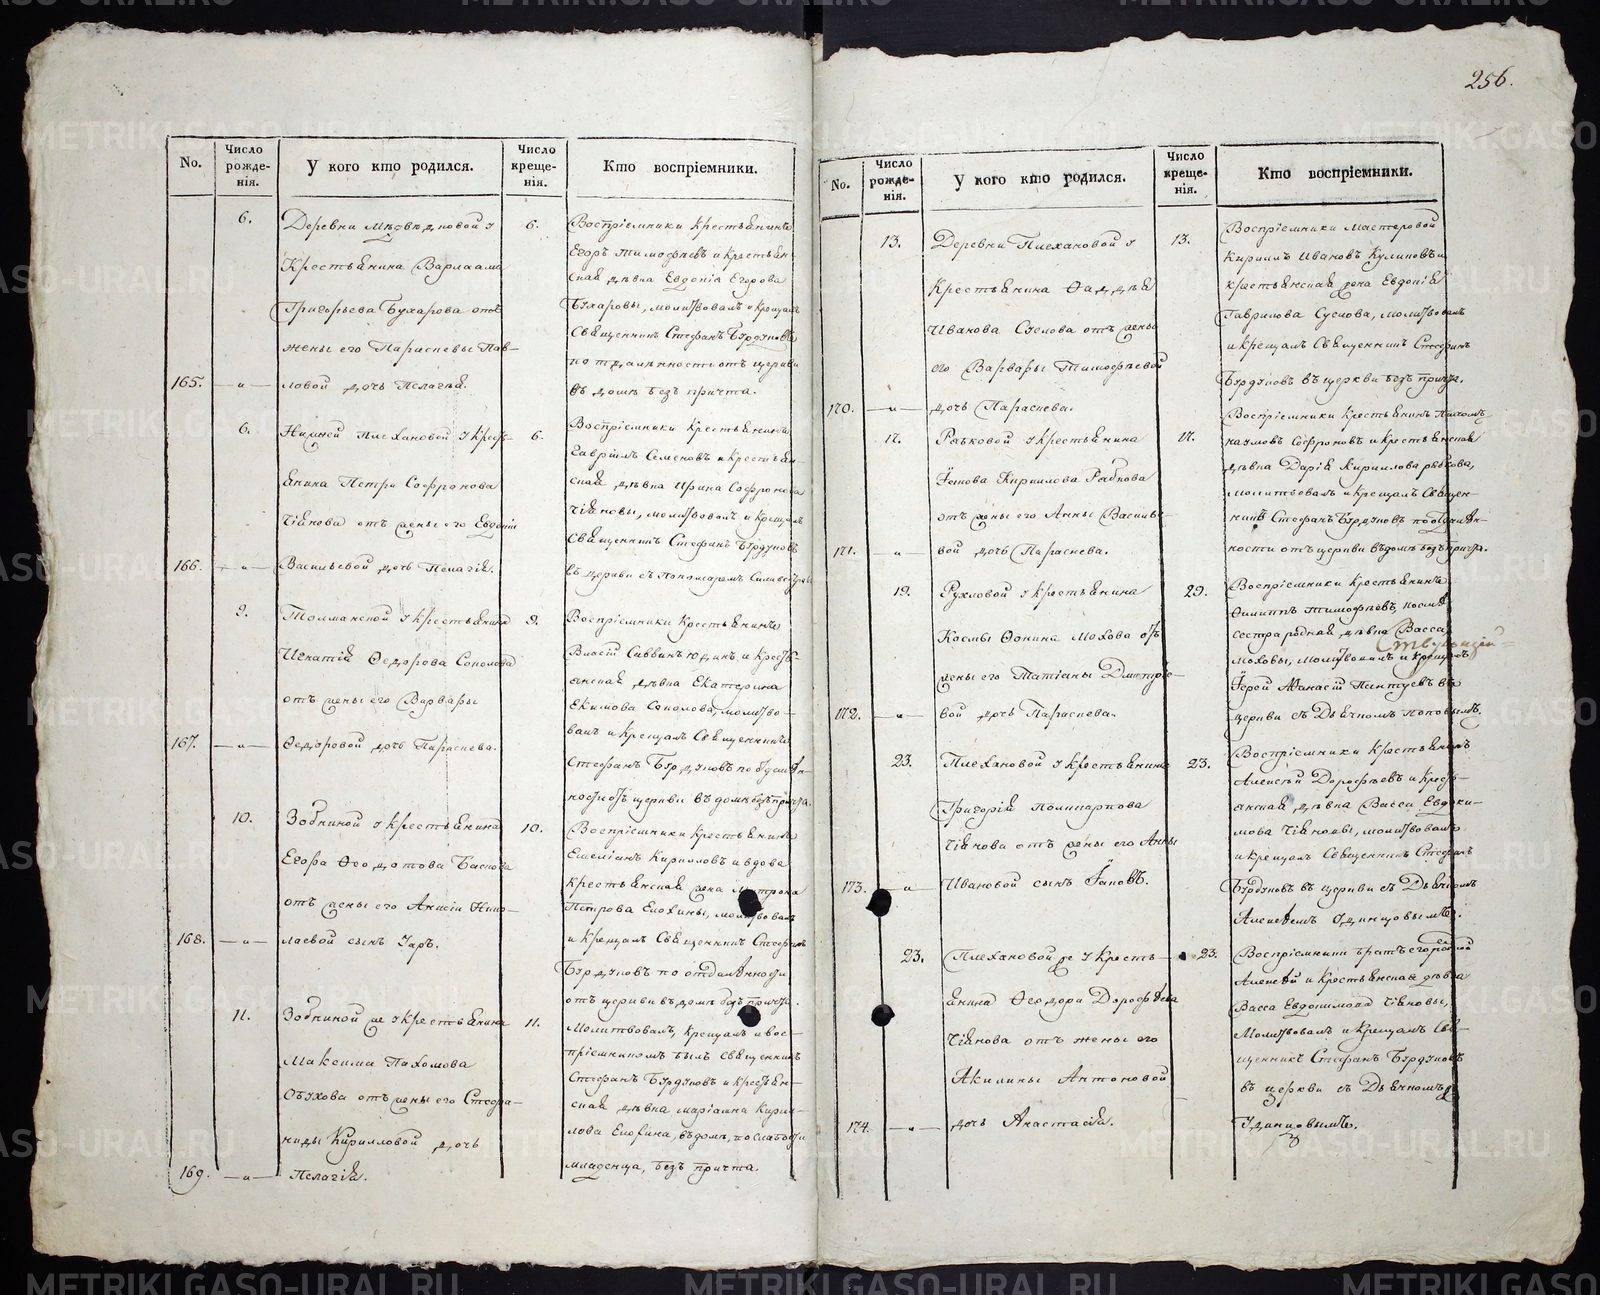 256.
No.
Число рожде-нія.
У кого кто родился.
Число креще-нія.
Кто воспріемники.
6.
Деревни Мѣдвѣдковой у
Крестьянина Варлаама
Григорьева Бухарова отъ
жены его Параскевы Пав-
165. —„— ловой дочь Пелагѣя.
6.
Воспріемники Крестьянинъ
Егоръ Тимофѣевъ и крестьян-
ская дѣвка Евдокія Егорова
Бухаровы, молитвовалъ и крещалъ
Священникъ Стефанъ Бурдуковъ
по отдаленности отъ церкви
въ домѣ безъ причта.
6.
Нижней Плехановой у крест-
янина Петра Софронова
Чіянова отъ жены его Евдокіи
166. —„— Васильевой дочь Пелагія.
6.
Воспріемники Крестьянинъ
Гавріилъ Семеновъ и крестьян-
ская дѣвка Ирина Софронова
Чіяновы, молитвовалъ и крещалъ
Священникъ Стефанъ Бурдуковъ
въ церкви съ Пономаремъ
9.
Толманской у крестьянина
Игнатія Ѳедорова Соколова
отъ жены его Варвары
167. —„— Ѳедоровой дочь Параскева.
9.
Воспріемники Крестьянинъ
Власій Саввинъ Юдинъ и крест-
янская дѣвка Екатерина
Екимова Соколова, молитво-
валъ и крещалъ Священникъ
Стефанъ Бурдуковъ по отдалѣн-
ности отъ церкви въ домѣ безъ причта.
10.
Зобниной у крестьянина
Егора Ѳеодотова Баскова
отъ жены его Анисіи Нико-
168. —„— лаевой сынъ Уаръ.
10.
Воспріемники крестьянинъ
Емеліанъ Кирилловъ и вдова
крестьянская жена Матрона
Петрова Елохины, молитвовалъ
и крещалъ Священникъ Стефанъ
Бурдуковъ по отдалѣнности
отъ церкви въ домѣ безъ причта.
11.
Зобниной же у крестьянина
Максима Пахомова
Обухова отъ жены его Стефа-
ниды Кирилловой дочь
169. —„— Пелагія.
11.
Молитвовалъ, крещалъ и вос-
пріемникомъ былъ Священникъ
Стефанъ Бурдуковъ и крестьян-
ская дѣвка Маріамна Кирил-
лова Елохина, въ домѣ, по слабости
младенца, безъ причта.
No.
Число рожде-нія.
У кого кто родился.
Число креще-нія.
Кто воспріемники.
13.
Деревни Плехановой у
Крестьянина Ѳаддѣя
Иванова Суслова отъ жены
его Варвары Тимофѣевой
170. —„— дочь Параскева.
13.
Воспріемники Мастеровой
Кириллъ Ивановъ Куликовъ и
крестьянская жена Евдокія
Гаврилова Суслова, молитвовалъ
и крещалъ Священникъ Стефанъ
Бурдуковъ въ церкви безъ причта.
17.
Рябковой у крестьянина
Іакова Кирилова Рябкова
отъ жены его Анны Василье-
171. —„— вой дочь Параскева.
17.
Воспріемники крестьянинъ Пахомъ
Наумовъ Софроновъ и крестьянская
дѣвка Дарія Кириллова Рябкова,
молитвовалъ и крещалъ Священ-
никъ Стефанъ Бурдуковъ по отдалѣн-
ности отъ церкви въ домѣ безъ причта.
19.
Рухловой у крестьянина
Космы Ѳокина Мохова отъ
жены его Татіаны Дмитріе-
172. —„— вой дочь Параскева.
29.
Воспріемники крестьянинъ
Филиппъ Тимофѣевъ,
сестра родная дѣвка Васса
Моховы, молитвовалъ и крещалъ
Іерей Аѳанасій Пантуевъ въ
церкви съ Дьячкомъ Поповымъ.
23.
Плехановой у крестьянина
Григорія Поликарпова
Чіянова отъ жены его Анны
173. —„— Ивановой сынъ Іаковъ.
23.
Воспріемники крестьянинъ
Алексѣй Дорофѣевъ и крест-
янская дѣвка Васса Евдоки-
мова Чіяновы, молитвовалъ
и крещалъ Священникъ Стефанъ
Бурдуковъ въ церкви съ Дьячкомъ
Алексѣемъ Удинцовымъ.
23.
Плехановой же у кресть-
янина Ѳеодора Дорофѣева
Чіянова отъ жены его
Акилины Антоновой
174. —„— дочь Анастасія.
23.
Воспріемники братъ его родной
Алексѣй и крестьянская дѣвка
Васса Евдокимова Чіяновы,
Молитвовалъ и крещалъ Свя-
щенникъ Стефанъ Бурдуковъ
въ церкви съ Дьячкомъ
Удинцовымъ.
METRIKI.GASO-URAL.RU